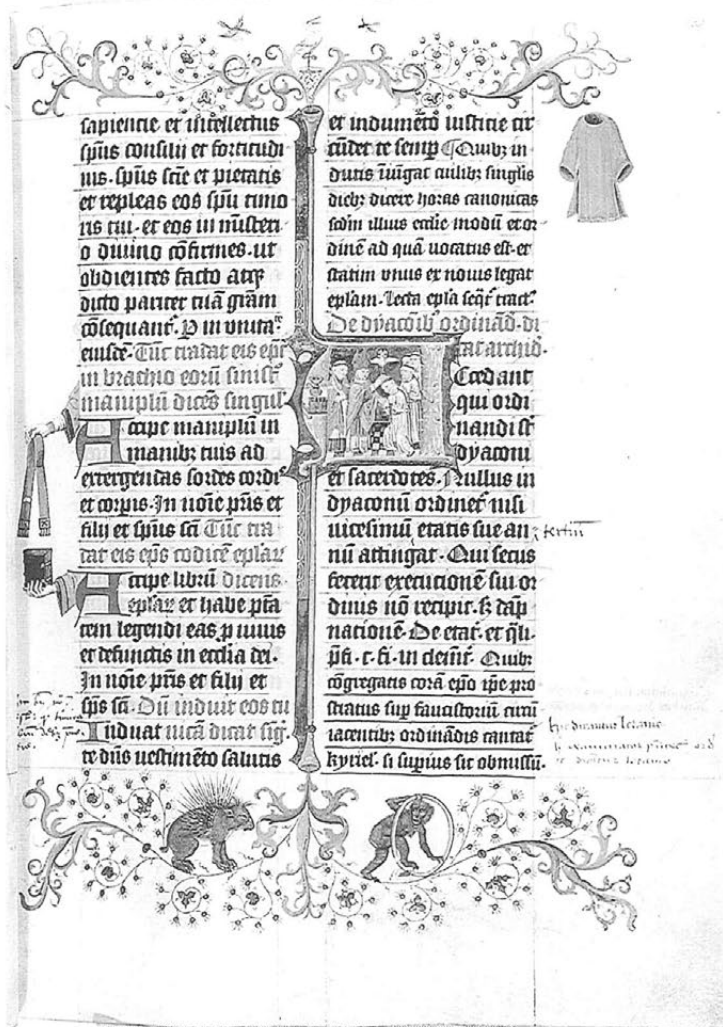 sapientie et intellectus
spūs consilii et fortitudi
nis. spūs scīe et pietatis
et repleas eos spū timo
ris tui. et eos in mīsteri
o diuino cōfirmes. ut
obdientes facto atqꝫ
dicto pariter tuā grām
cōsequant᷑. P in unita
eiusdē. Tūc tradat eis epūs
in brachio eorū sinist᷑
manipulū dicēs singul᷑
Accipe manipulū in
manibꝫ tuis ad
extergendas sordes cordis
et corpis. In noīe pīris et
filij et spūs scī Tūc tra
dat eis epūs codicē eplar᷑
Accipe librū dicens
eplaꝝ et habe ptā
tem legendi eas p uiuis
et defunctis in ecclia dei.
In noīe pīris et filij et
spūs scī. Dū induit eos tu
Induat nicā dicat sig᷑
te dn̄s uestimēto salutis
et indumēto iusticie cir
cūdet te semp Quibꝫ in
dutis iniūgat cuilibꝫ singlis
diebꝫ dicere horas canonicas
scdm illius ecclie modū et or
dinē ad quā uocatus est. et
statim vnus ex nouis legat
eplam. Lecta epla seqt᷑ tract᷑
De dyaconibꝫ ordinād. di
cat archid.
Accedant
qui ordi
nandi sūt
dyaconi
et sacerdotes. Nullus in
dyaconū ordinet᷑ nisi
uicesimū etatis sue an
nū attingat. Qui secus
fecerit executionē sui or
dinis nō recipit. sꝫ dāp
nationē. De etat᷑. et q̄li.
p̄fi. c. fi. in clemt᷑. Quibꝫ
cōgregatis corā epō ipe pro
stratus sup faucistoriū circū
iacentibꝫ ordinādis cantat᷑
kyriel. si supius sit obmissū.
tertiū